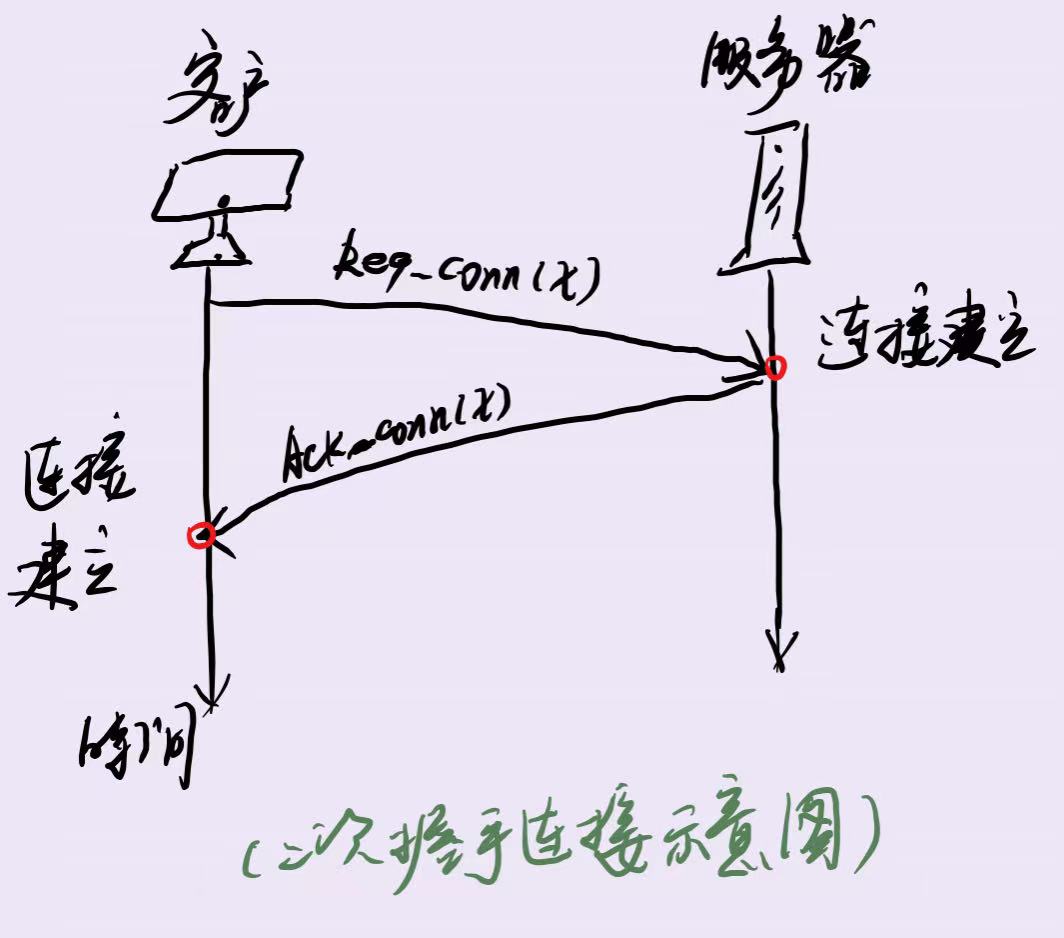 客户
服务器
Req_conn(x)
连接建立
Ack_conn(x)
连接
建立
时间
(二次握手连接示意图)